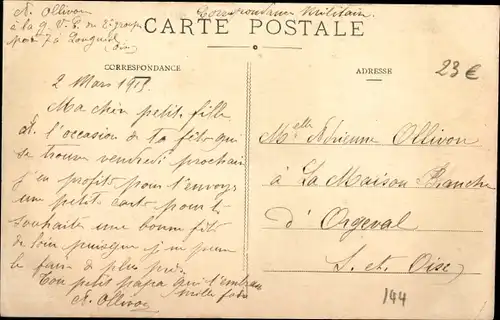 A. Ollivon
à la 9e V.B. du 2e groupe
à Longueil
(Oise)
Correspondance Militaire.
CARTE POSTALE
CORRESPONDANCE
ADRESSE
23€
2 Mars 1915.
Ma chère petite fille
A l'occasion de ta fête qui
se trouve vendredi prochain
j'en profite pour t'envoyer
une petite carte pour te
souhaiter une bonne fête
de loin puisque je ne peux
le faire de plus près
Ton petit papa qui t'embrasse
mille fois
A. Ollivon
Melle Adrienne Ollivon
à La Maison Blanche
d'Orgeval
S. et. Oise
144